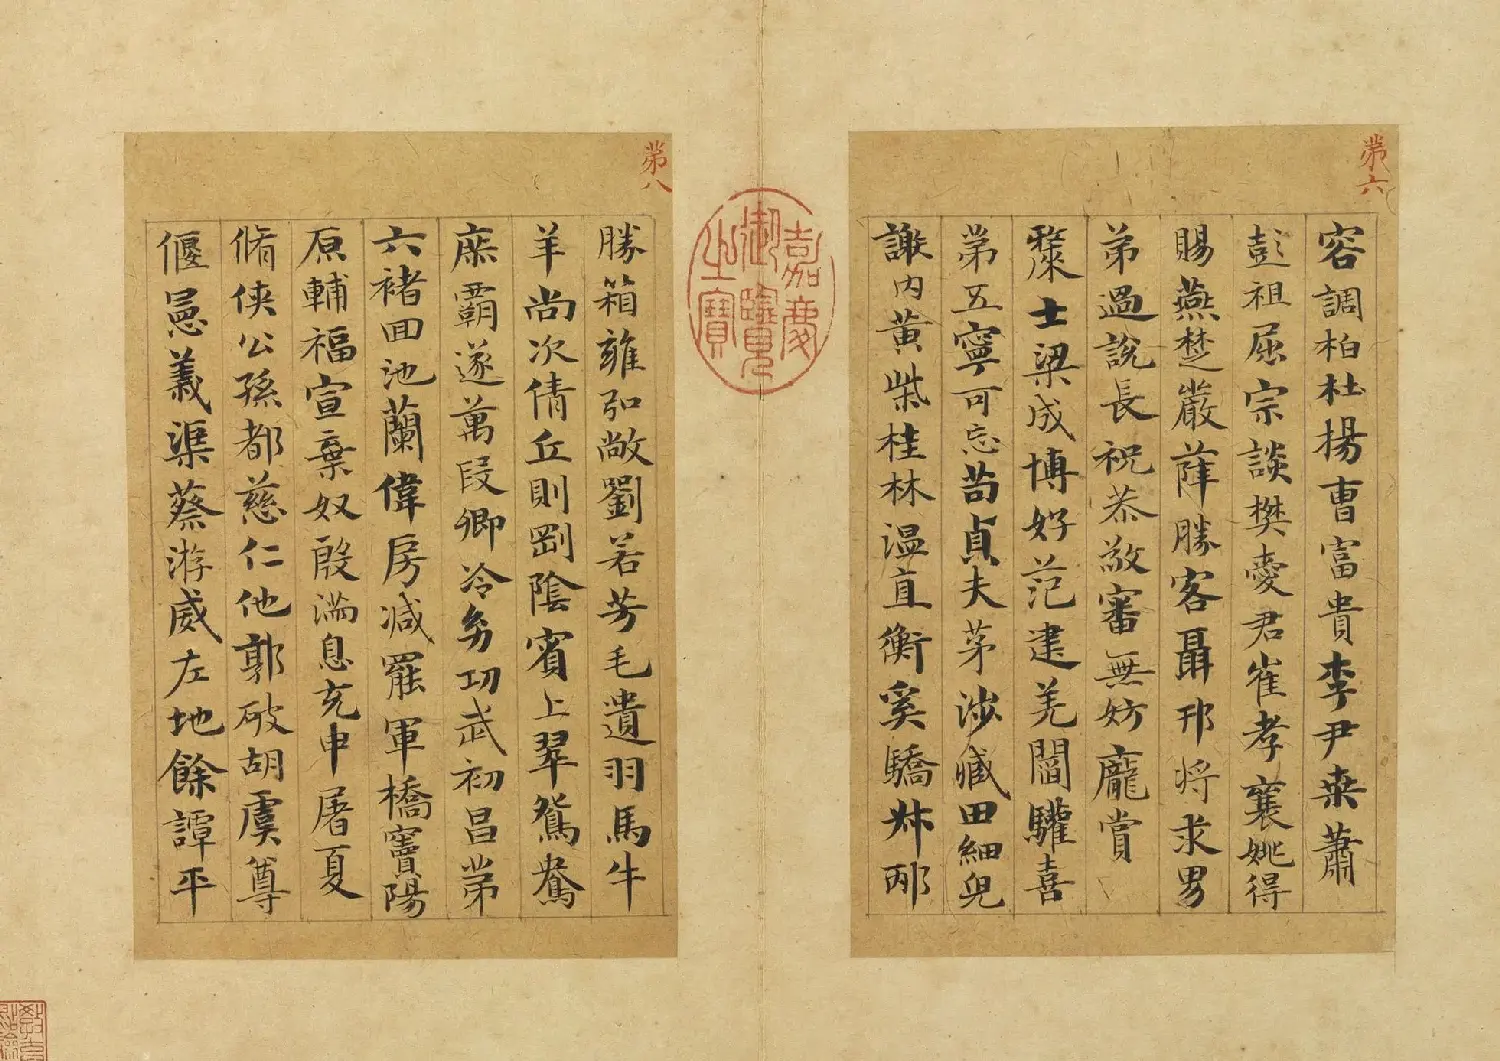 第六
容調柏杜揚曺富貴李尹桒蕭
彭祖屈宗談樊愛君崔孝襄姚得
賜燕楚嚴薛勝客聶邗将求男
弟過說長祝恭敬審無妨龐賞
士梁成博好范建羌閻驩喜
第五寧可忘苟貞夫茅涉臧田細皃
謝内黄柴桂林温直衡奚驕邴
第八
勝箱雍弘敞劉若芳毛遺羽馬牛
羊尚次倩丘則剛陰賓上翠鴛鴦
庶霸遂萬段卿冷幼功武初昌苐
六褚回池蘭偉房减罷軍橋竇陽
原輔福宣棄奴殷滿息充申屠夏
脩俠公孫都慈仁他郭破胡虞尊
偃憲義渠蔡游威左地餘譚平
嘉慶御覽之寶